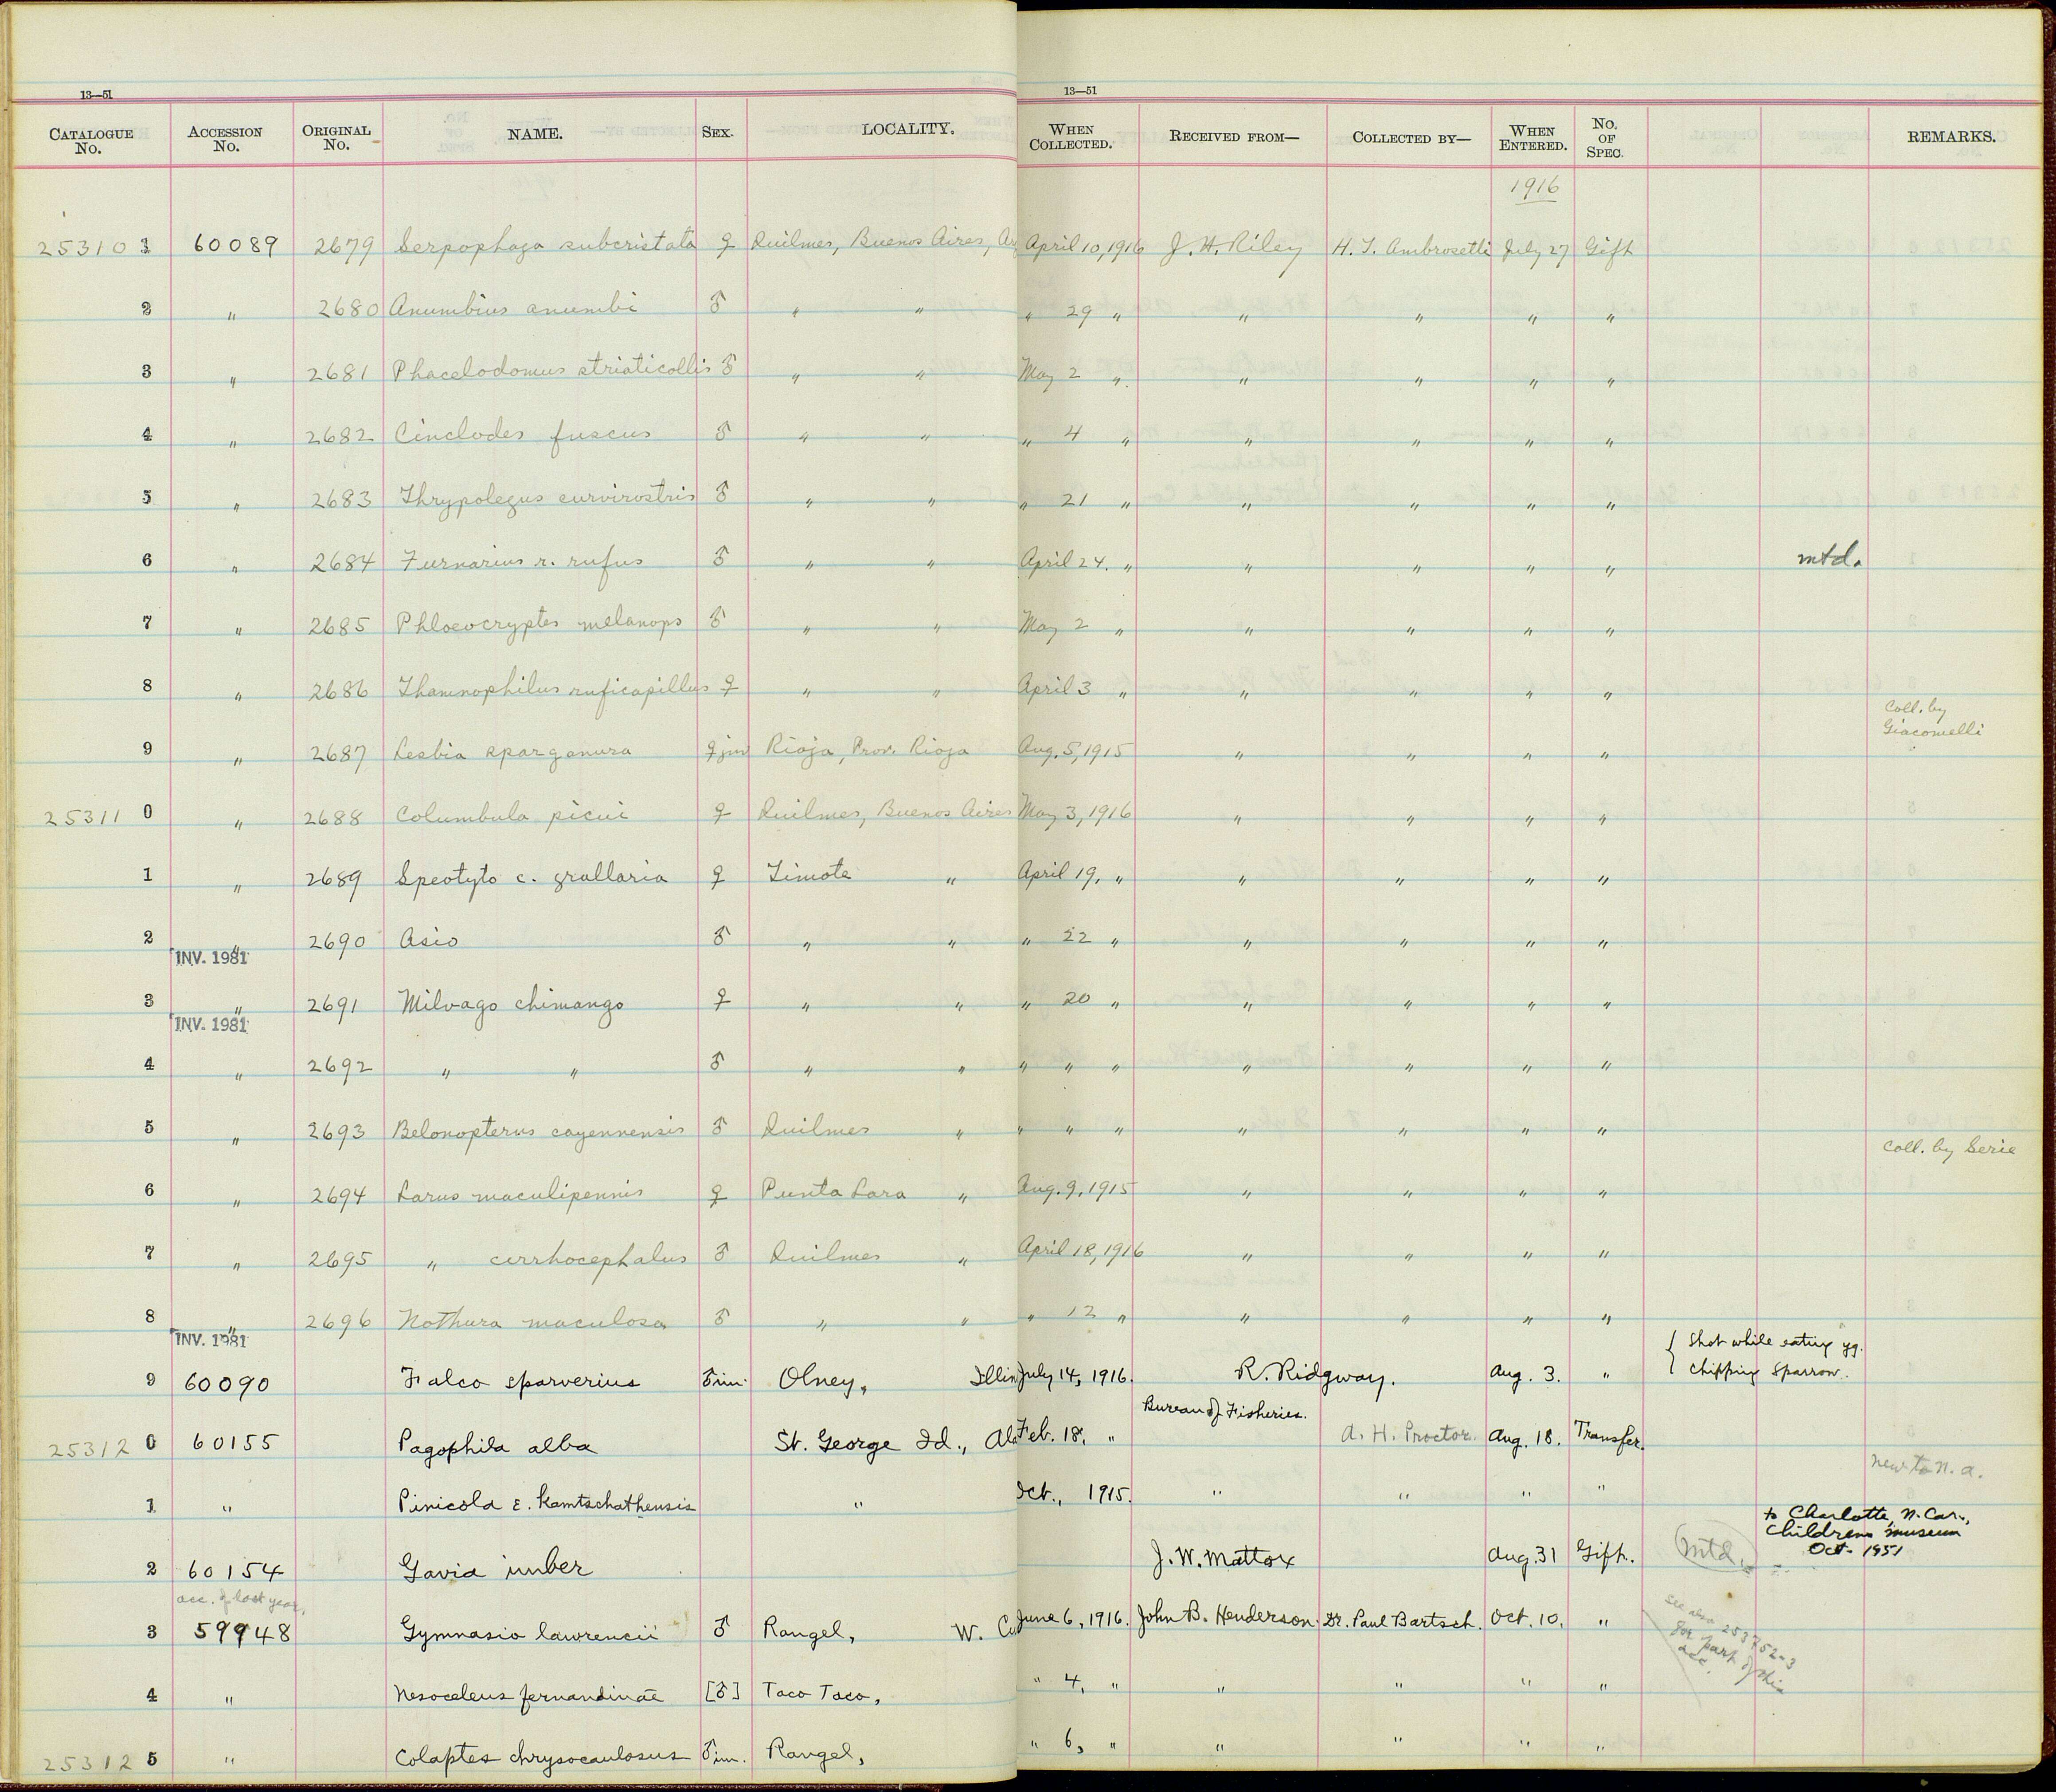 13—51 13—51
CATALOGUE No. ACCESSION No. ORIGINAL No. NAME. SEX. LOCALITY. WHEN COLLECTED. RECEIVED FROM— COLLECTED BY— WHEN ENTERED. No. OF SPEC. REMARKS.
1916
25310 1 60089 2679 Serpophaga subcristata ♀ Quilmes, Buenos Aires, Ar April 10, 1916 J. H. Riley H. T. Ambrosetti July 27 Gift
2 " 2680 Anumbius anumbi ♂ " " " 29 " " " " "
3 " 2681 Phacelodomus striaticollis ♂ " " May 2 " " " " "
4 " 2682 Cinclodes fuscus ♂ " " " 4 " " " " "
5 " 2683 Thrypolegus curvirostris ♂ " " " 21 " " " " "
6 " 2684 Furnarius r. rufus ♂ " " April 24. " " " " " mtd.
7 " 2685 Phloeocryptes melanops ♂ " " May 2 " " " " "
8 " 2686 Thamnophilus ruficapillus ♀ " " April 3 " " " " "
Coll. by
Giacomelli
9 " 2687 Lesbia sparganura ♀ juv Rioja, Prov. Rioja Aug. 5, 1915 " " " "
25311 0 " 2688 Columbula picui ♀ Quilmes, Buenos Aires May 3, 1916 " " " "
1 " 2689 Speotyto c. grallaria ♀ Timote " April 19, " " " " "
2 " 2690 Asio ♂ " " " 22 " " " " "
INV. 1981
3 " 2691 Milvago chimango ♀ " " " 20 " " " " "
INV. 1981
4 " 2692 " " ♂ " " " " " " " " "
5 " 2693 Belonopterus cayennensis ♂ Quilmes " " " " " " " "
Coll. by Serie
6 " 2694 Larus maculipennis ♀ Punta Lara " Aug. 9, 1915 " " " "
7 " 2695 " cirrhocephalus ♂ Quilmes " April 18, 1916 " " " "
8 " 2696 Nothura maculosa ♂ " " " 12 " " " " "
INV. 1981
{ Shot while eating yg.
Chipping Sparrow.
9 60090 Falco sparverius ♂ im. Olney, Illin July 14, 1916. R. Ridgway. Aug. 3. "
Bureau of Fisheries.
25312 0 60155 Pagophila alba St. George Id., Ala Feb. 18, " A. H. Proctor Aug. 18. Transfer.
New to N. A.
1 " Pinicola e. kamtschathensis " Oct., 1915. " " " "
to Charlotte, N. Car.,
Childrens Museum
Oct. 1951
2 60154 Gavia imber J. W. Mattox Aug. 31 Gift. Mtd.
acc. of last year.
3 59948 Gymnasio lawrencii ♂ Rangel, W. Cu June 6, 1916. John B. Henderson. Dr. Paul Bartsch. Oct. 10. "
See also 253752-3
for part of this
acc.
4 " Nesoceleus fernandinae [♂] Taco Taco, " 4, " " " " "
25312 5 " Colaptes chrysocaulosus ♂ im. Rangel, " 6, " " " " "